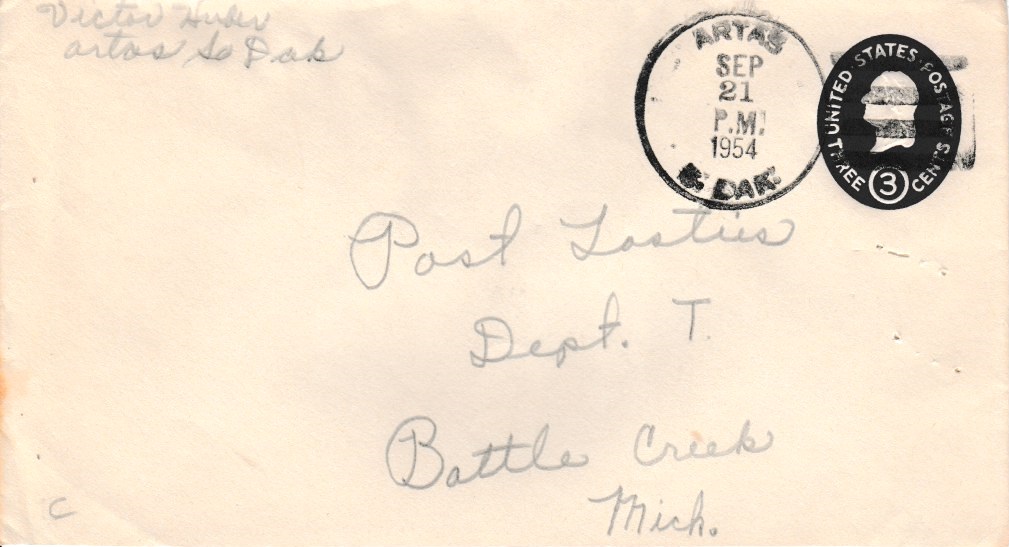 Victor Huber
Artas So Dak
ARTAS
SEP
21
P.M.
1954
S. DAK.
UNITED STATES POSTAGE
THREE 3 CENTS
Post Tosties
Dept. T.
Battle Creek
Mich.
C